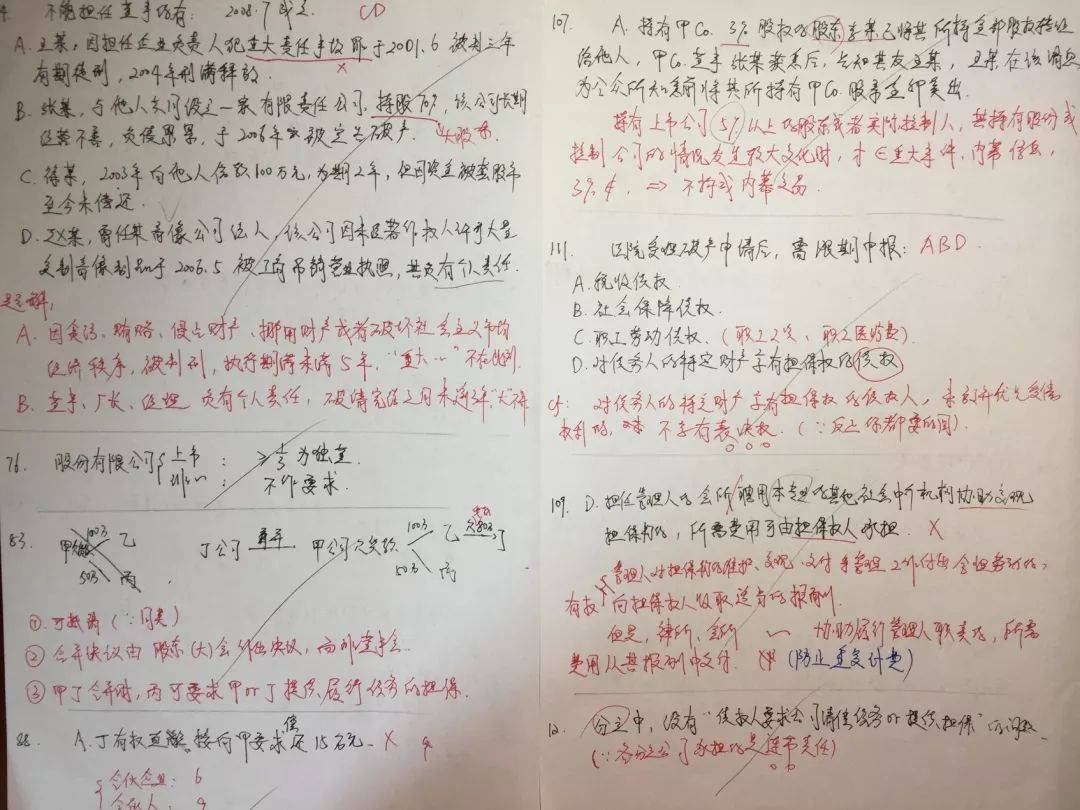 不能担任董事的有: 2008.7成立. CD
A. 王某,因担任企业负责人犯重大责任事故罪于2001.6被判三年
有期徒刑,2004年刑满释放.
B. 张某,与他人共同设立一家有限责任公司,持股70%,该公司长期
经营不善,负债累累,于2006年被宣告破产. 大股东
C. 徐某,2003年向他人借款100万元,为期2年,但因资金被套股市
至今未偿还.
D. 赵某,曾任某音像公司法人,该公司因未经著作权人许可大量
复制音像制品于2006.5被工商吊销营业执照,其负有个人责任.
题解:
A. 因贪污、贿赂、侵占财产、挪用财产或者破坏社会主义市场
经济秩序,被判刑,执行期满未满5年.“重大…”不在此列.
B. 董事、厂长、经理负有个人责任,不
76. 股份有限公司 上市 : ≥1/3为独董.
: 不作要求.
83. 100万 乙 丁公司 甲公司欠债 100万 乙
50万 丙 50万 丙
① 可抵消(∵同类)
② 合并决议由股东(大)会作出决议,而非董事会.
③ 甲丁合并时,丙可要求甲or丁提供履行债务的担保.
88. A. 丁有权直接向甲要求偿还15万元. ×
合伙企业: 6
合伙人: 9
107. A. 持有甲Co. 3%股权的股东李某已将其所持全部股权转让
给他人,甲Co.董事张某获悉后,告知其友王某,王某在该消息
为公众所知悉前将其所持有甲Co.股票全部卖出.
持有上市公司5%以上的股东或者实际控制人,其持有股份或
控制公司的情况发生较大变化时,才∈重大事件、内幕信息,
3%.4. ⇒ 不构成内幕交易.
111. 法院受理破产申请后,需限期申报: ABD.
A. 税收债权.
B. 社会保障债权.
C. 职工劳动债权.(职工工资、职工医疗费)
D. 对债务人的特定财产享有担保权的债权
cf: 对债务人的特定财产享有担保权的债权人,未放弃优先受偿
权利的,不享有表决权.(∵反正你都要的回).
109. D. 担任管理人的会所聘用本专业的其他社会中介机构协助变现
担保物的,所需费用可由担保权人承担. ×
管理人对担保物的维护、变现、交付等管理工作付出合理劳动的,
有权向担保权人收取适当的报酬.
但是,律所、会所 〜 协助履行管理人职责的,所需
费用从其报酬中支付.(防止重复计费)
12. 分立中,没有“债权人要求公司清偿债务or提供担保”的问题.
(∵各分立公司承担的是连带责任)